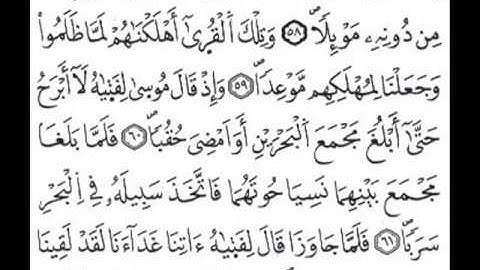 مِن دُونِهِۦ مَوْئِلًا ٥٨ وَتِلْكَ ٱلْقُرَىٰٓ أَهْلَكْنَٰهُمْ لَمَّا ظَلَمُوا۟
وَجَعَلْنَا لِمَهْلِكِهِم مَّوْعِدًا ٥٩ وَإِذْ قَالَ مُوسَىٰ لِفَتَىٰهُ لَآ أَبْرَحُ
حَتَّىٰٓ أَبْلُغَ مَجْمَعَ ٱلْبَحْرَيْنِ أَوْ أَمْضِىَ حُقُبًا ٦٠ فَلَمَّا بَلَغَا
مَجْمَعَ بَيْنِهِمَا نَسِيَا حُوتَهُمَا فَٱتَّخَذَ سَبِيلَهُۥ فِى ٱلْبَحْرِ
سَرَبًا ٦١ فَلَمَّا جَاوَزَا قَالَ لِفَتَىٰهُ ءَاتِنَا غَدَآءَنَا لَقَدْ لَقِينَا